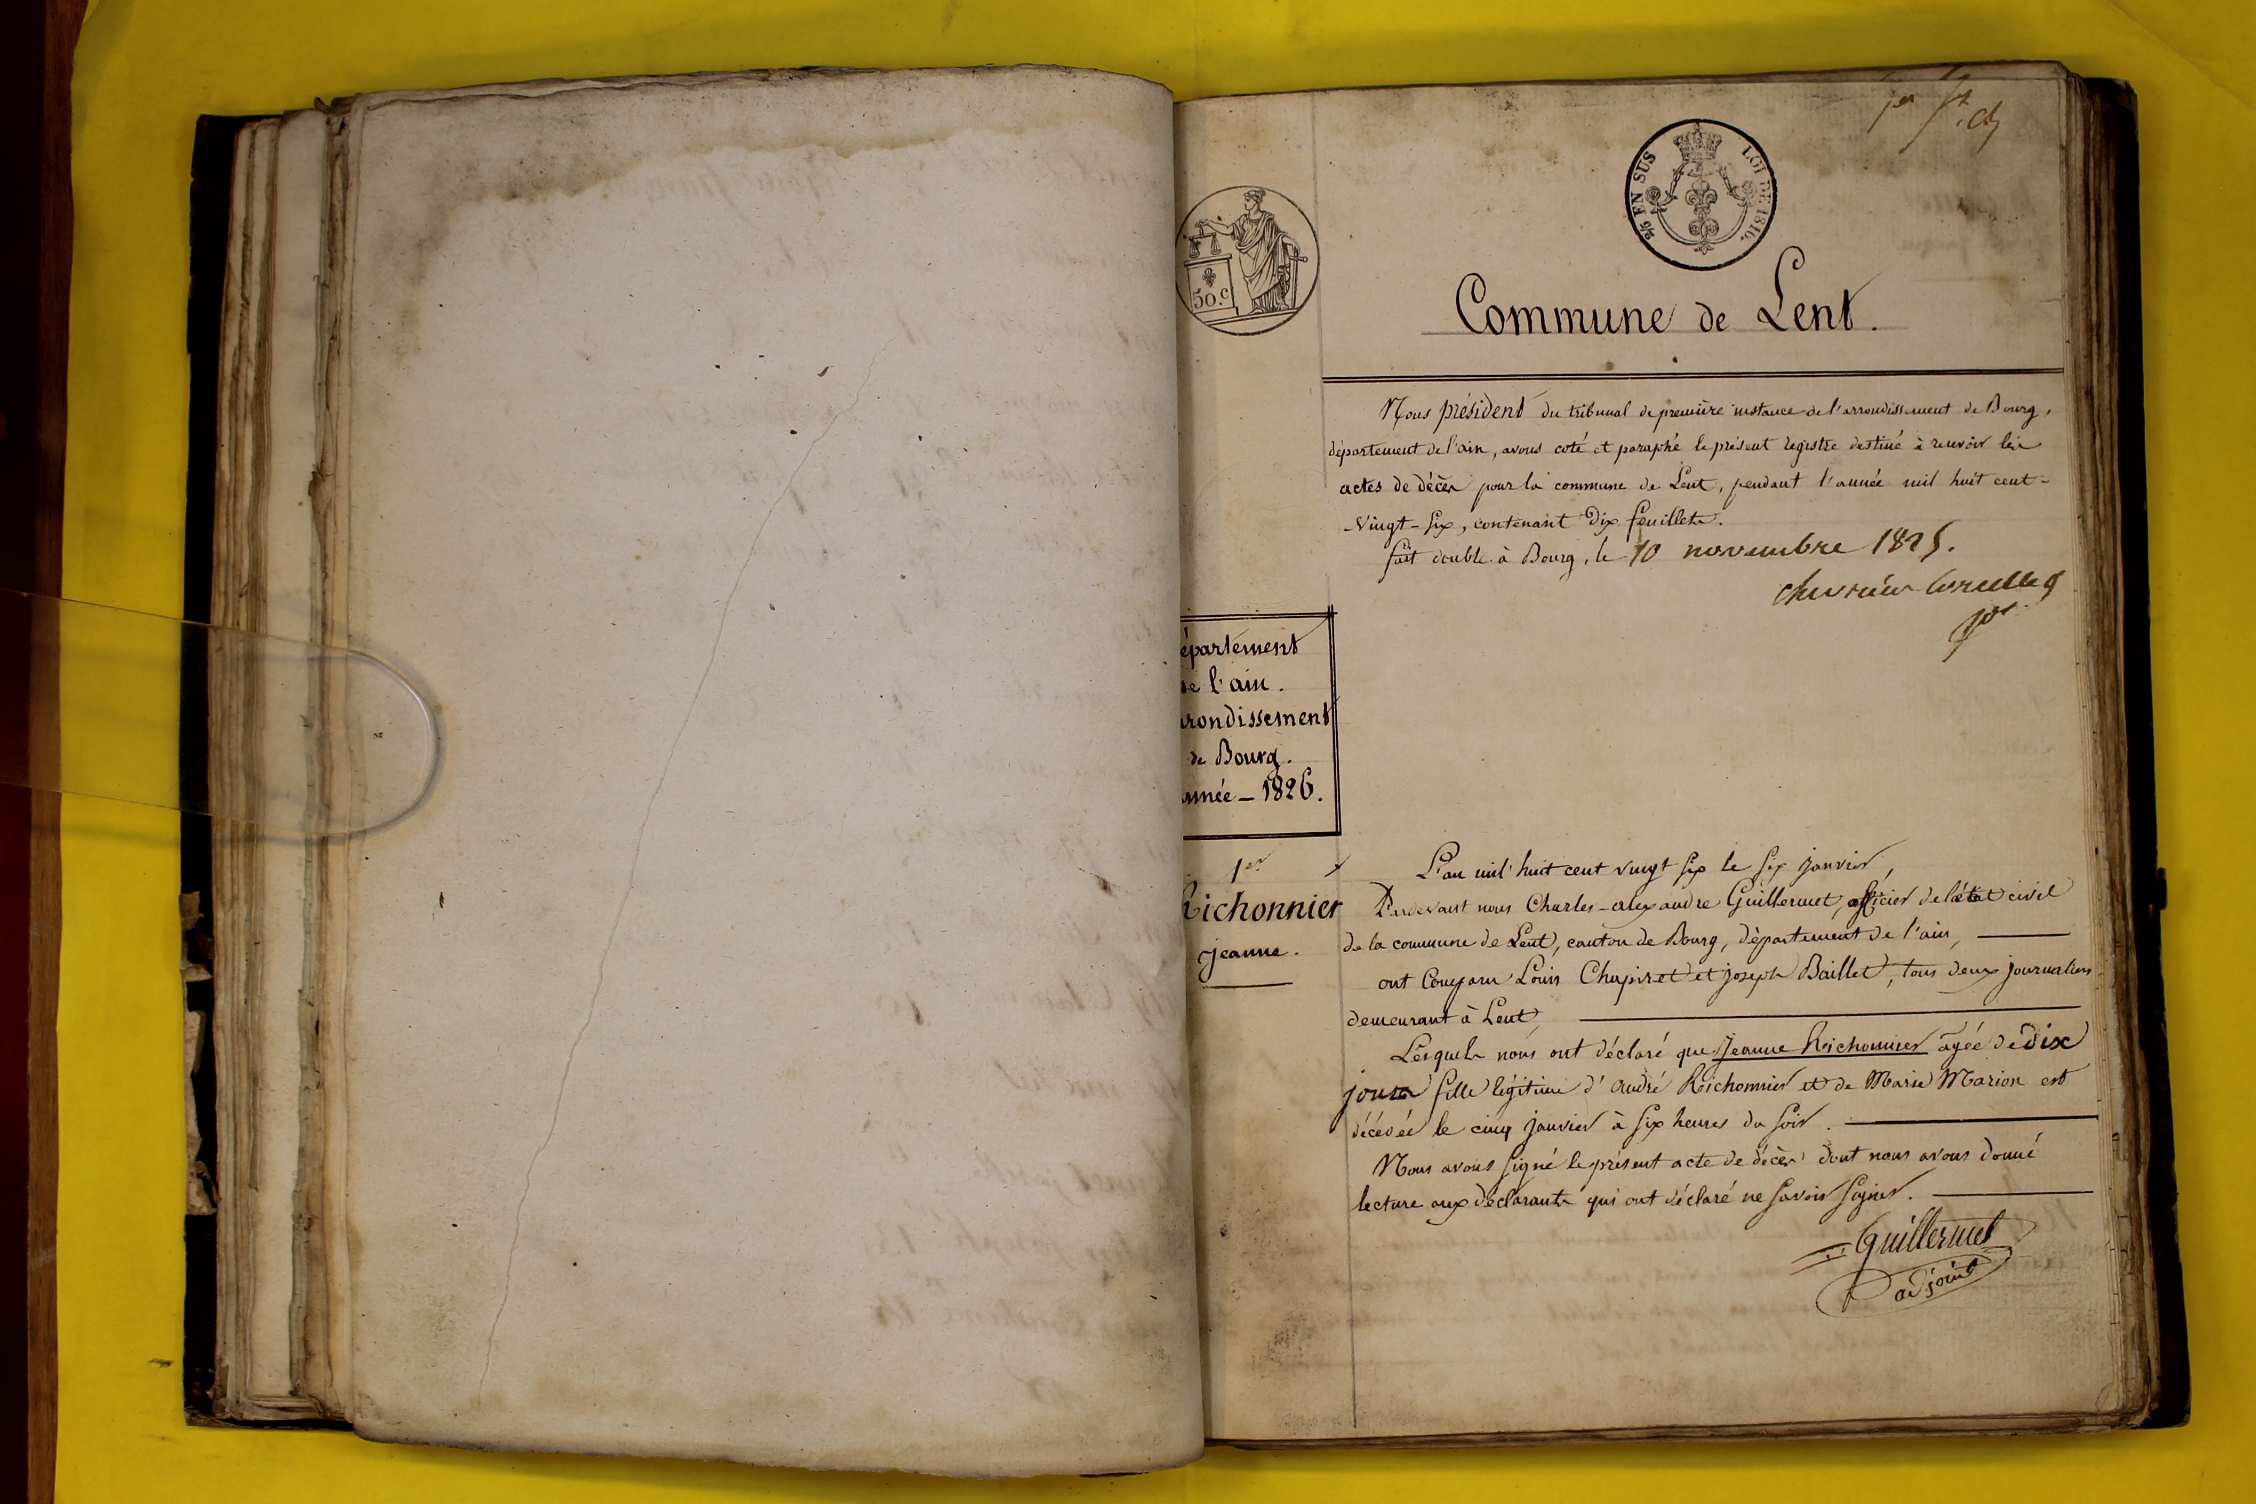 1er
25 EN SUS
LOI DE 1816.
50.c
Commune de Lent.
Nous président du tribunal de première instance de l'arrondissement de Bourg,
département de l'ain, avons coté et paraphé le présent registre destiné à recevoir les
actes de décès pour la commune de Lent, pendant l'année mil huit cent-
-vingt-six, contenant dix feuillets.
fait double à Bourg, le 10 novembre 1825.
épartement
de l'ain.
rondissement
de Bourg.
année - 1826.
1er
Richonnier
jeanne.
L'an mil huit cent vingt six le six janvier,
Pardevant nous Charles-alexandre Guillermet, officier de l'état civil
de la commune de Lent, canton de Bourg, département de l'ain,
ont Comparu Louis Chapiret et joseph Baillet, tous deux journaliers
demeurant à Lent,
Lesquels nous ont déclaré que Jeanne Richonnier âgée de dix
jours fille légitime d'andré Richonnier et de Marie Marion est
décédée le cinq janvier à six heures du soir.
Nous avons signé le présent acte de décès dont nous avons donné
lecture aux déclarants qui ont déclaré ne savoir signer.
Guillermet
adjoint